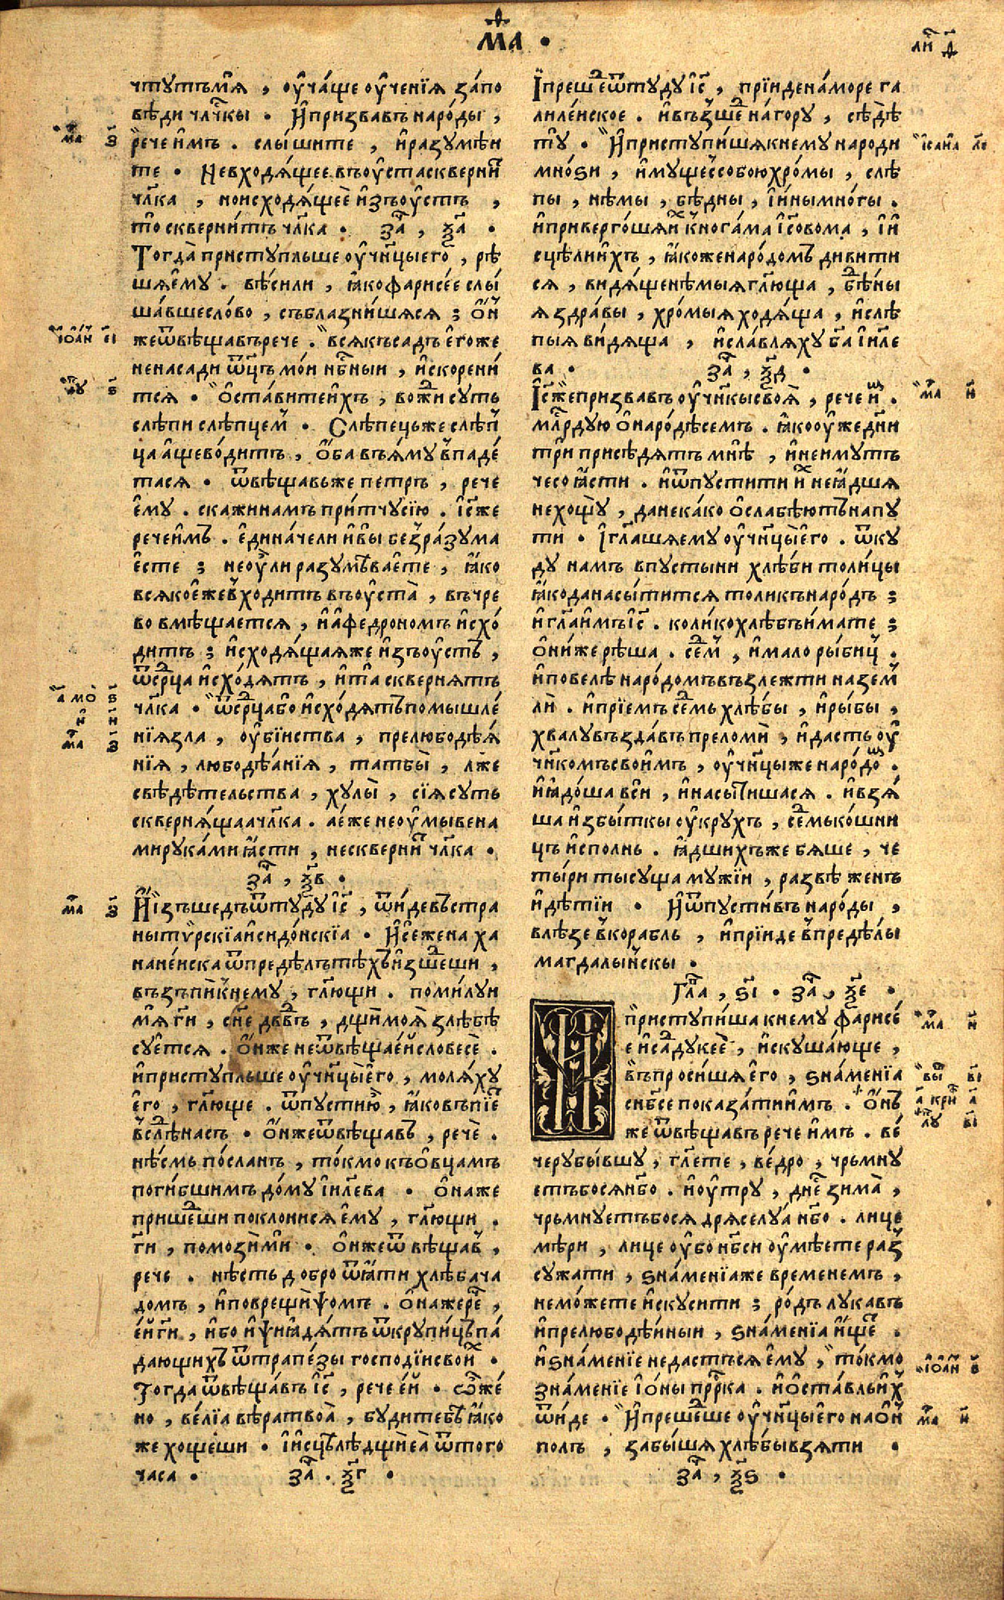 МА҃ •
ли҃ д҃
чтутъмѧ̀ , ѹ҆ча́ще ѹ҆че́нїѧ запо
вѣди чл҃чкы • И҆призвавъ наро́ды ,
рече и҆мъ . слы́шите , и҆разꙋмѣи
те • Невходѧ́щее въѹ҆ста сквернит
чл҃ка , ноисходѧ́щеѐ и҆зъѹ҆стъ ,
то сквернитъ чл҃ка • за҃ , ѯ҃а •
Тогда̀ пристꙋпльше ѹ҆ч҃нцыего̀ , рѣ
шѧ є҆мꙋ . вѣсили , ꙗ҆ко фарисеє слы́
шавшесло́во , съблазни́шѧсѧ ; о҆н
жеѿвѣщавъ рече . всѧкъ садъ є҆гоже
ненасади ѿц҃ъ мо́и нб҃ныи , и҆скорени́
тсѧ • О҆ста́витеи҆хъ , вожи суть
слѣпи слѣпцем • Слѣпецьже слѣп
ца а҆щево́дитъ , о҆ба въꙗ́мꙋ впаде́
тасѧ • ѿвѣщавьже петръ , рече
є҆мꙋ . скажинамъ при́тчꙋсїю . і҆с҃же
речеи҆мъ . є҆дина́чели и҆вы́ безра́зꙋма
є҆сте ; неѹ҆̀ли разꙋмѣва́ете , ꙗ҆ко
всѧкоє҆жевхо́дитъ въѹ҆ста̀ , въчре
во вмѣща́ется , и҆а҆федрономъ и҆схо́
дитъ ; и҆сходѧ́щаꙗже и҆зъѹ҆стъ ,
ѿср҃ца и҆схо́дѧтъ , и҆та̀ сквернѧтъ
чл҃ка • ѿср҃цабо и҆схо́дѧтъ помышле́
нїѧ зла , ѹ҆бі́иства , прелюбодѣѧ́
нїѧ , любодѣѧ́нїѧ , татбы̀ , лже
свѣдѣтельства , хꙋлы̀ , сїѧ суть
сквернѧ́щаа чл҃ка . аєже неѹ҆мыве́на
мирꙋка́ми ꙗ҆сти , нескверни́т чл҃ка •
за҃ , ѯ҃в •
И҆и҆зъшедъѿтꙋ́дꙋ і҆с҃ , ѿи́де въстра
ны тѵ́рскїа и҆сидо́нскїа • И҆се жена ха
нане́иска ѿпредѣлъ тѣхъ и҆зше́ши ,
възъпи́к немꙋ , гл҃ющи . поми́лꙋи
мѧ̀ г҃и , сн҃е дв҃въ , дщи моꙗ̀ злѣ бѣ
сꙋ́етсѧ . О҆́нже неѿвѣща е҆и словесѐ .
и҆пристꙋпльше ѹ҆ч҃нцыє҆го , молѧ́хꙋ
є҆го , гл҃юще . ѿпꙋстию̀ , ꙗ҆ко въпїе
вслѣ́дъ насъ • О҆́нжеѿвѣщавъ , речѐ .
нѣ́смь по́сланъ , то́кмо къо҆вцамъ
поги́бшимъ до́мꙋ і҆и҃лева • О҆на́же
прише́дши поклони́сѧ є҆мꙋ , гл҃ющи .
г҃и , помози́ ми • О҆́нжеѿвѣщав ,
рече . нѣсть добро ѿꙗ҆ти хлѣба ча
домъ , и҆поврещѝ псомъ . О҆на́жерече ,
е҆и г҃и , и҆бо и҆пси ꙗ҆дѧтъ ѿкрꙋпи́цъ па́
дающихъ ѿтрапе́зы господи́и своих •
Тогда ѿвѣща́въ і҆с҃ , рече е҆и • ѽже́
но , ве́лїа вѣра твоа̀ , бꙋ́дитебѣ ꙗ҆ко
же хощеши • И҆и҆сцѣлѣ дщи еа̀ ѿтого
часа • за҃ . ѯ҃г •
І҆прешедъѿтꙋдꙋ і҆с҃ , прїиде на́море га
лиле́иское . и҆възше́дъ на́горꙋ , сѣ́дѣ
тꙋ̀ • И҆пристꙋпи́шѧ кнемꙋ наро́ди
мно́ѕи , и҆мꙋщессобою хро́мы , слѣ
пы , нѣмы , бѣ́дны , и҆и́ны мно́гы .
и҆приверго́шѧи҆х кногама і҆с҃овома , і҆и
сцѣлѝи҆хъ , ꙗ҆коже наро́домъ диви́ти
сѧ , ви́дѧще нѣмыѧ гл҃юща , бѣ́дны
ѧ здра́вы , хро́мыѧ хо́дѧща , и҆слѣ
пыѧ ви́дѧща , и҆сла́влѧхꙋ б҃а і҆и҃ле
ва • за҃ , ѯ҃д •
І҆с҃жепризвавъ ѹ҆ч҃нкы своѧ̀ , рече и҆м .
мл҃рдꙋю о҆наро́дѣ семъ . ꙗ҆коѹ҆́же дни
три присѣдѧ́тъ мнѣ̀ , и҆неи́мꙋтъ
чесо ꙗ҆сти . и҆ѿпꙋсти́ти и҆х не ꙗ҆́дшѧ
нехощꙋ̀ , данека́ко о҆слабѣ́ютъ напꙋ
ти • І҆гл҃ашѧемꙋ ѹ҆ч҃нцы є҆го . ѿкꙋ
дꙋ намъ впꙋсты́ни хлѣби толи́цы
ꙗ҆коданасы́титсѧ толи́къ наро́дъ ;
и҆гл҃аи҆мъ і҆с҃ . коли́ко хлѣбъ и҆мате ;
о҆ни́же рѣша . се́дм , и҆мало ры́биц .
и҆повелѣ наро́домъ възлежти на зем
лѝ . и҆прїемъ се́дмь хлѣбы , и҆рыбы ,
хвалꙋ възда́въ преломѝ , и҆дасть ѹ҆
ч҃нкомъ свои́мъ , ѹ҆ч҃нцы же наро́дом .
и҆ꙗдо́ша всѝ , и҆насы́тишасѧ . и҆взѧ́
ша и҆збы́ткы ѹ҆крꙋхъ , се́дмь ко́шни
цъ и҆сполнь . ꙗ҆дши́хъже бѧше , че
ты́ри ты́сꙋща мꙋжїи , развѣ женъ
и҆дѣтїи • И҆ѿпꙋсти́въ наро́ды ,
влѣзе вкорабль , и҆прїи́де впредѣ́лы
магдалы́нскы .
Гла҃ , ѕ҃і . за҃ , ѯ҃е •
Ипристꙋпи́ша кнемꙋ фарисе́
е и҆садꙋке́є , и҆скꙋша́юще ,
въпроси́шѧ є҆го , ѕна́менїа
снб҃се показа́ти и҆мъ . О҆́нъ
же ѿвѣща́въ рече и҆мъ . ве́
черꙋ бы́вшꙋ , гл҃ете , ве́дро , чрьмнꙋ
етъбосѧ нб҃о . и҆ѹ҆тру , дне́с зима̀ ,
чрьмнꙋетъбосѧ дрѧселꙋа нб҃о . лице
мѣри , лице ѹ҆́бо нб҃си ѹ҆мѣете раз
сꙋжати , ѕна́менїа же временемъ ,
немо́жете и҆скꙋси́ти ; ро́дъ лꙋкавъ
и҆прелюбодѣи́ныи , ѕна́менїа и҆́щет .
и҆ѕна́менїе недастъсѧ є҆мꙋ , то́кмо
зна́менїе і҆о́ны пр҃рка . и҆о҆ста́вль и҆х
ѿи́де • И҆преше́дше ѹ҆ч҃нцы є҆го на о҆н
полъ , забы́шѧ хлѣбы взѧти •
за҃ , ѯ҃ѕ •